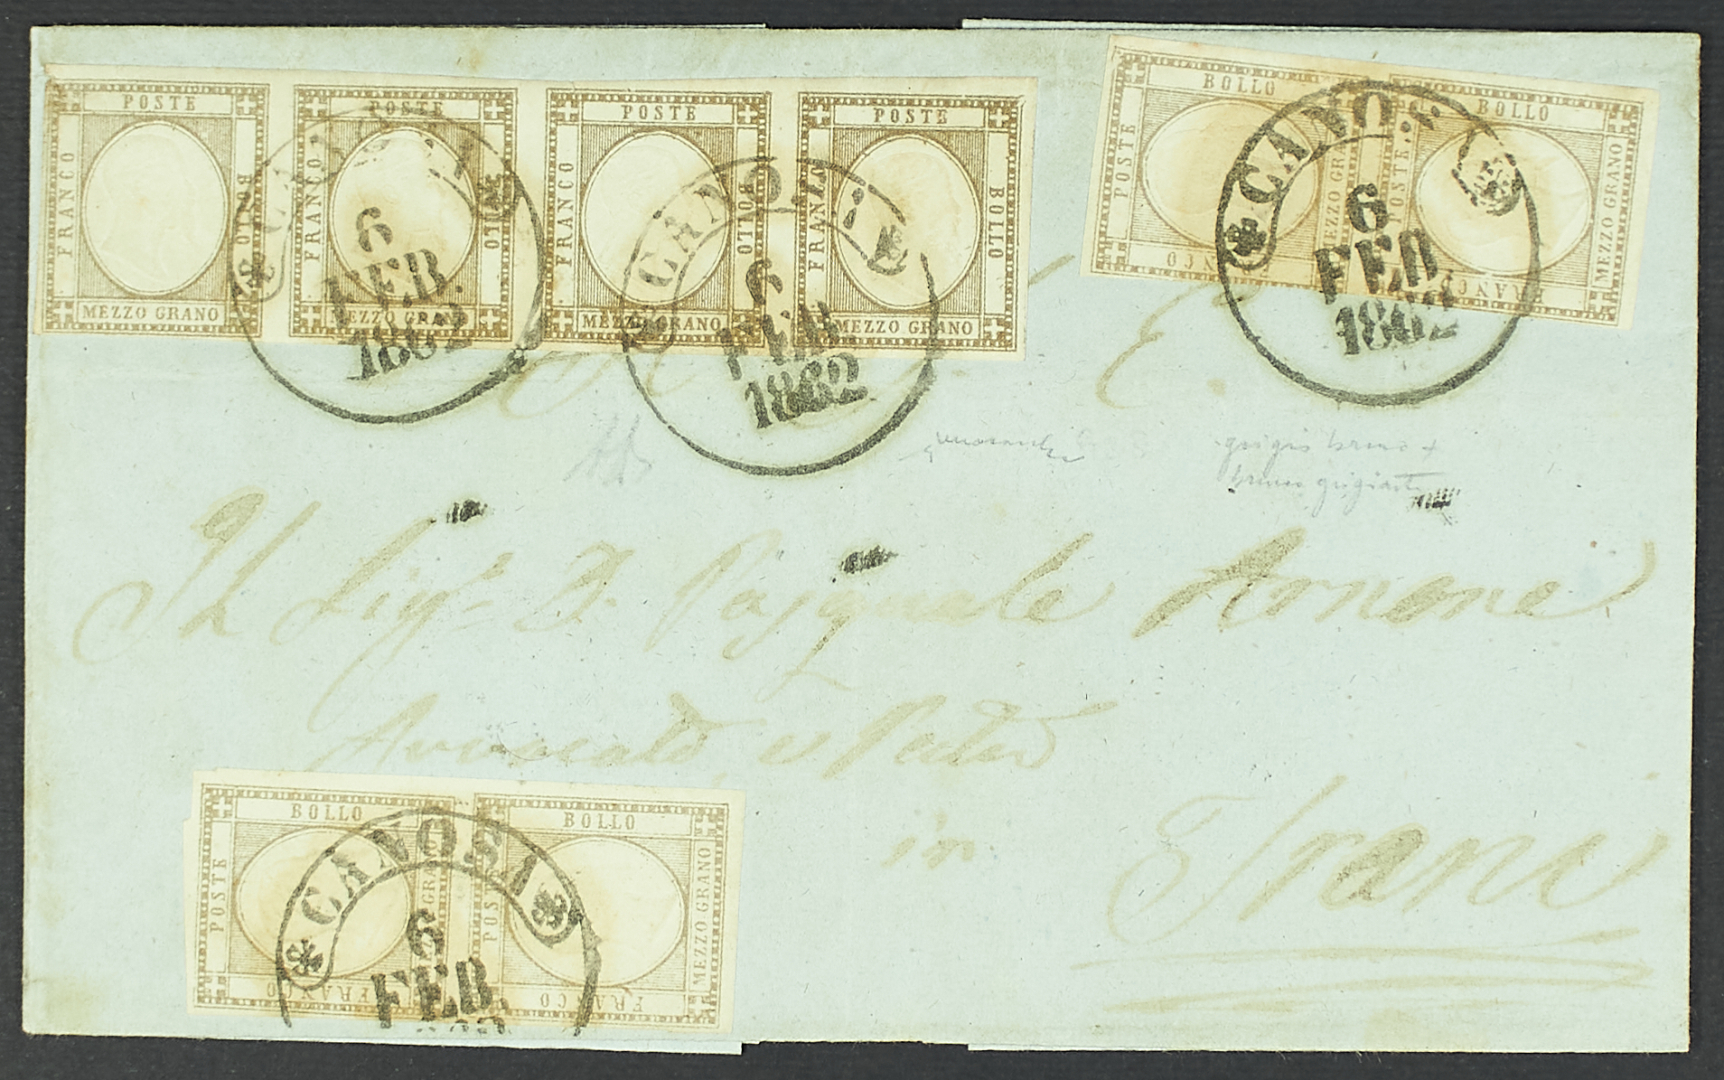 POSTE FRANCO BOLLO MEZZO GRANO
POSTE FRANCO BOLLO MEZZO GRANO
POSTE FRANCO BOLLO MEZZO GRANO
POSTE FRANCO BOLLO MEZZO GRANO
BOLLO POSTE MEZZO GRANO FRANCO
BOLLO POSTE MEZZO GRANO FRANCO
CANOSA
6
FEB.
1862
CANOSA
6
FEB.
1862
CANOSA
6
FEB.
1862
grigio bruno +
bruno grigiastro
Al Sigr. D. Pasquale Arnone
Avvocato
in
Trani
BOLLO POSTE GRANO FRANCO
BOLLO POSTE MEZZO GRANO FRANCO
CANOSA
6
FEB.
1862